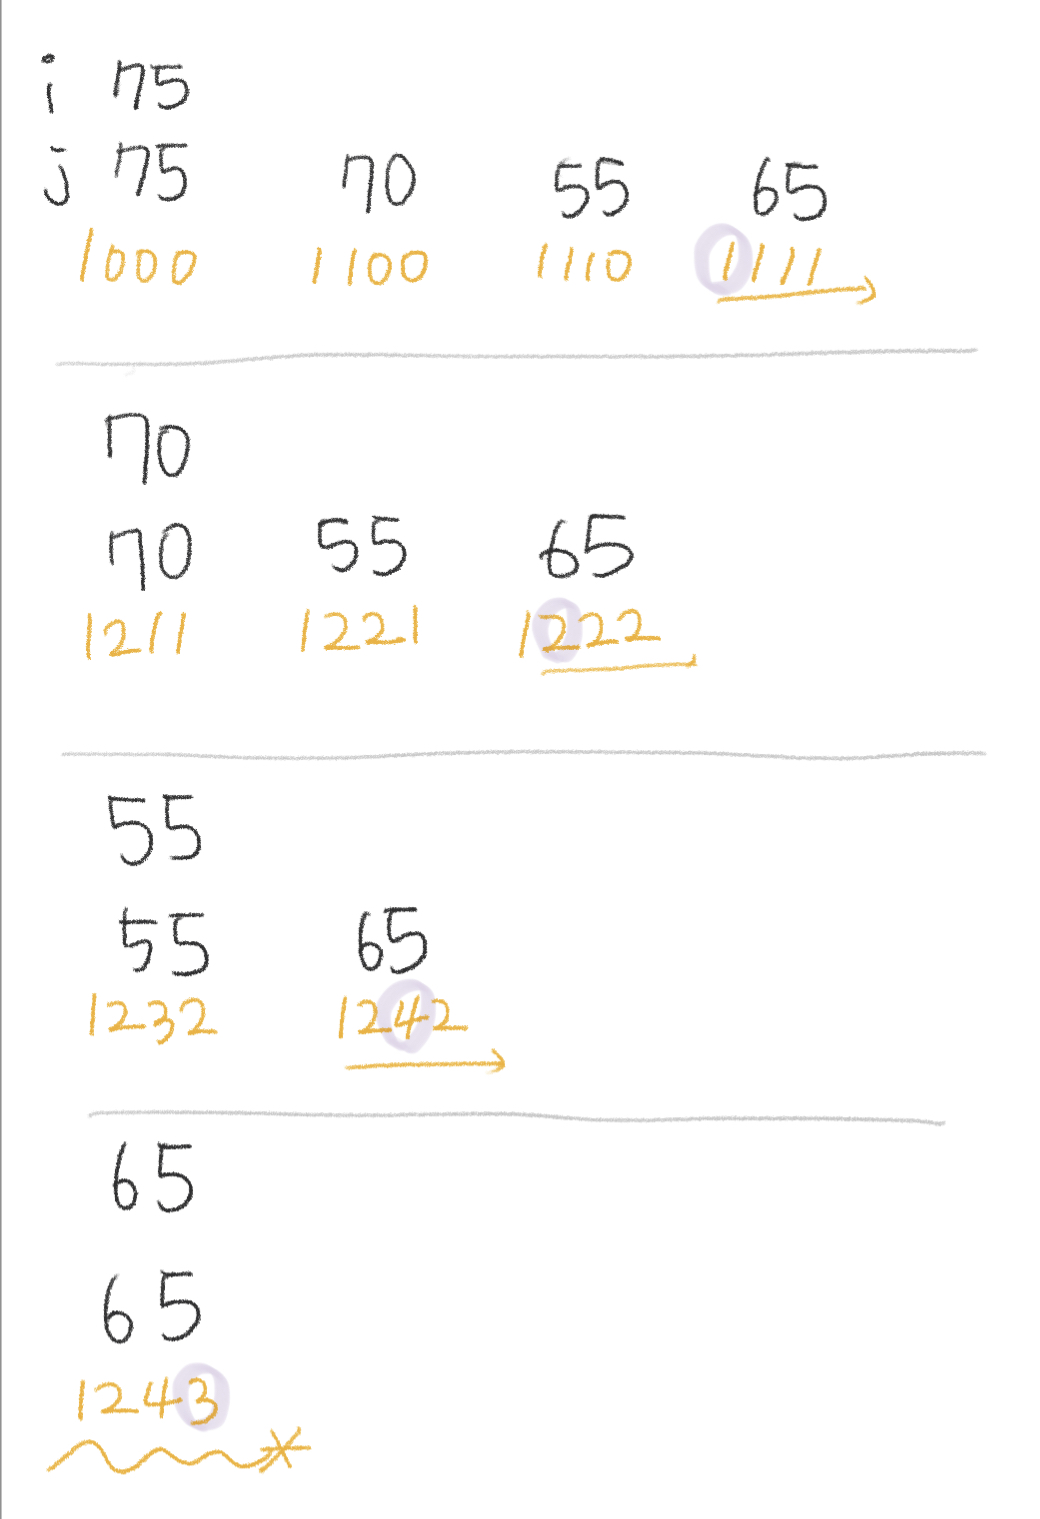 i 75
j 75 70 55 65
1000 1100 1110 1111
70
70 55 65
1211 1221 1222
55
55 65
1232 1242
65
65
1243